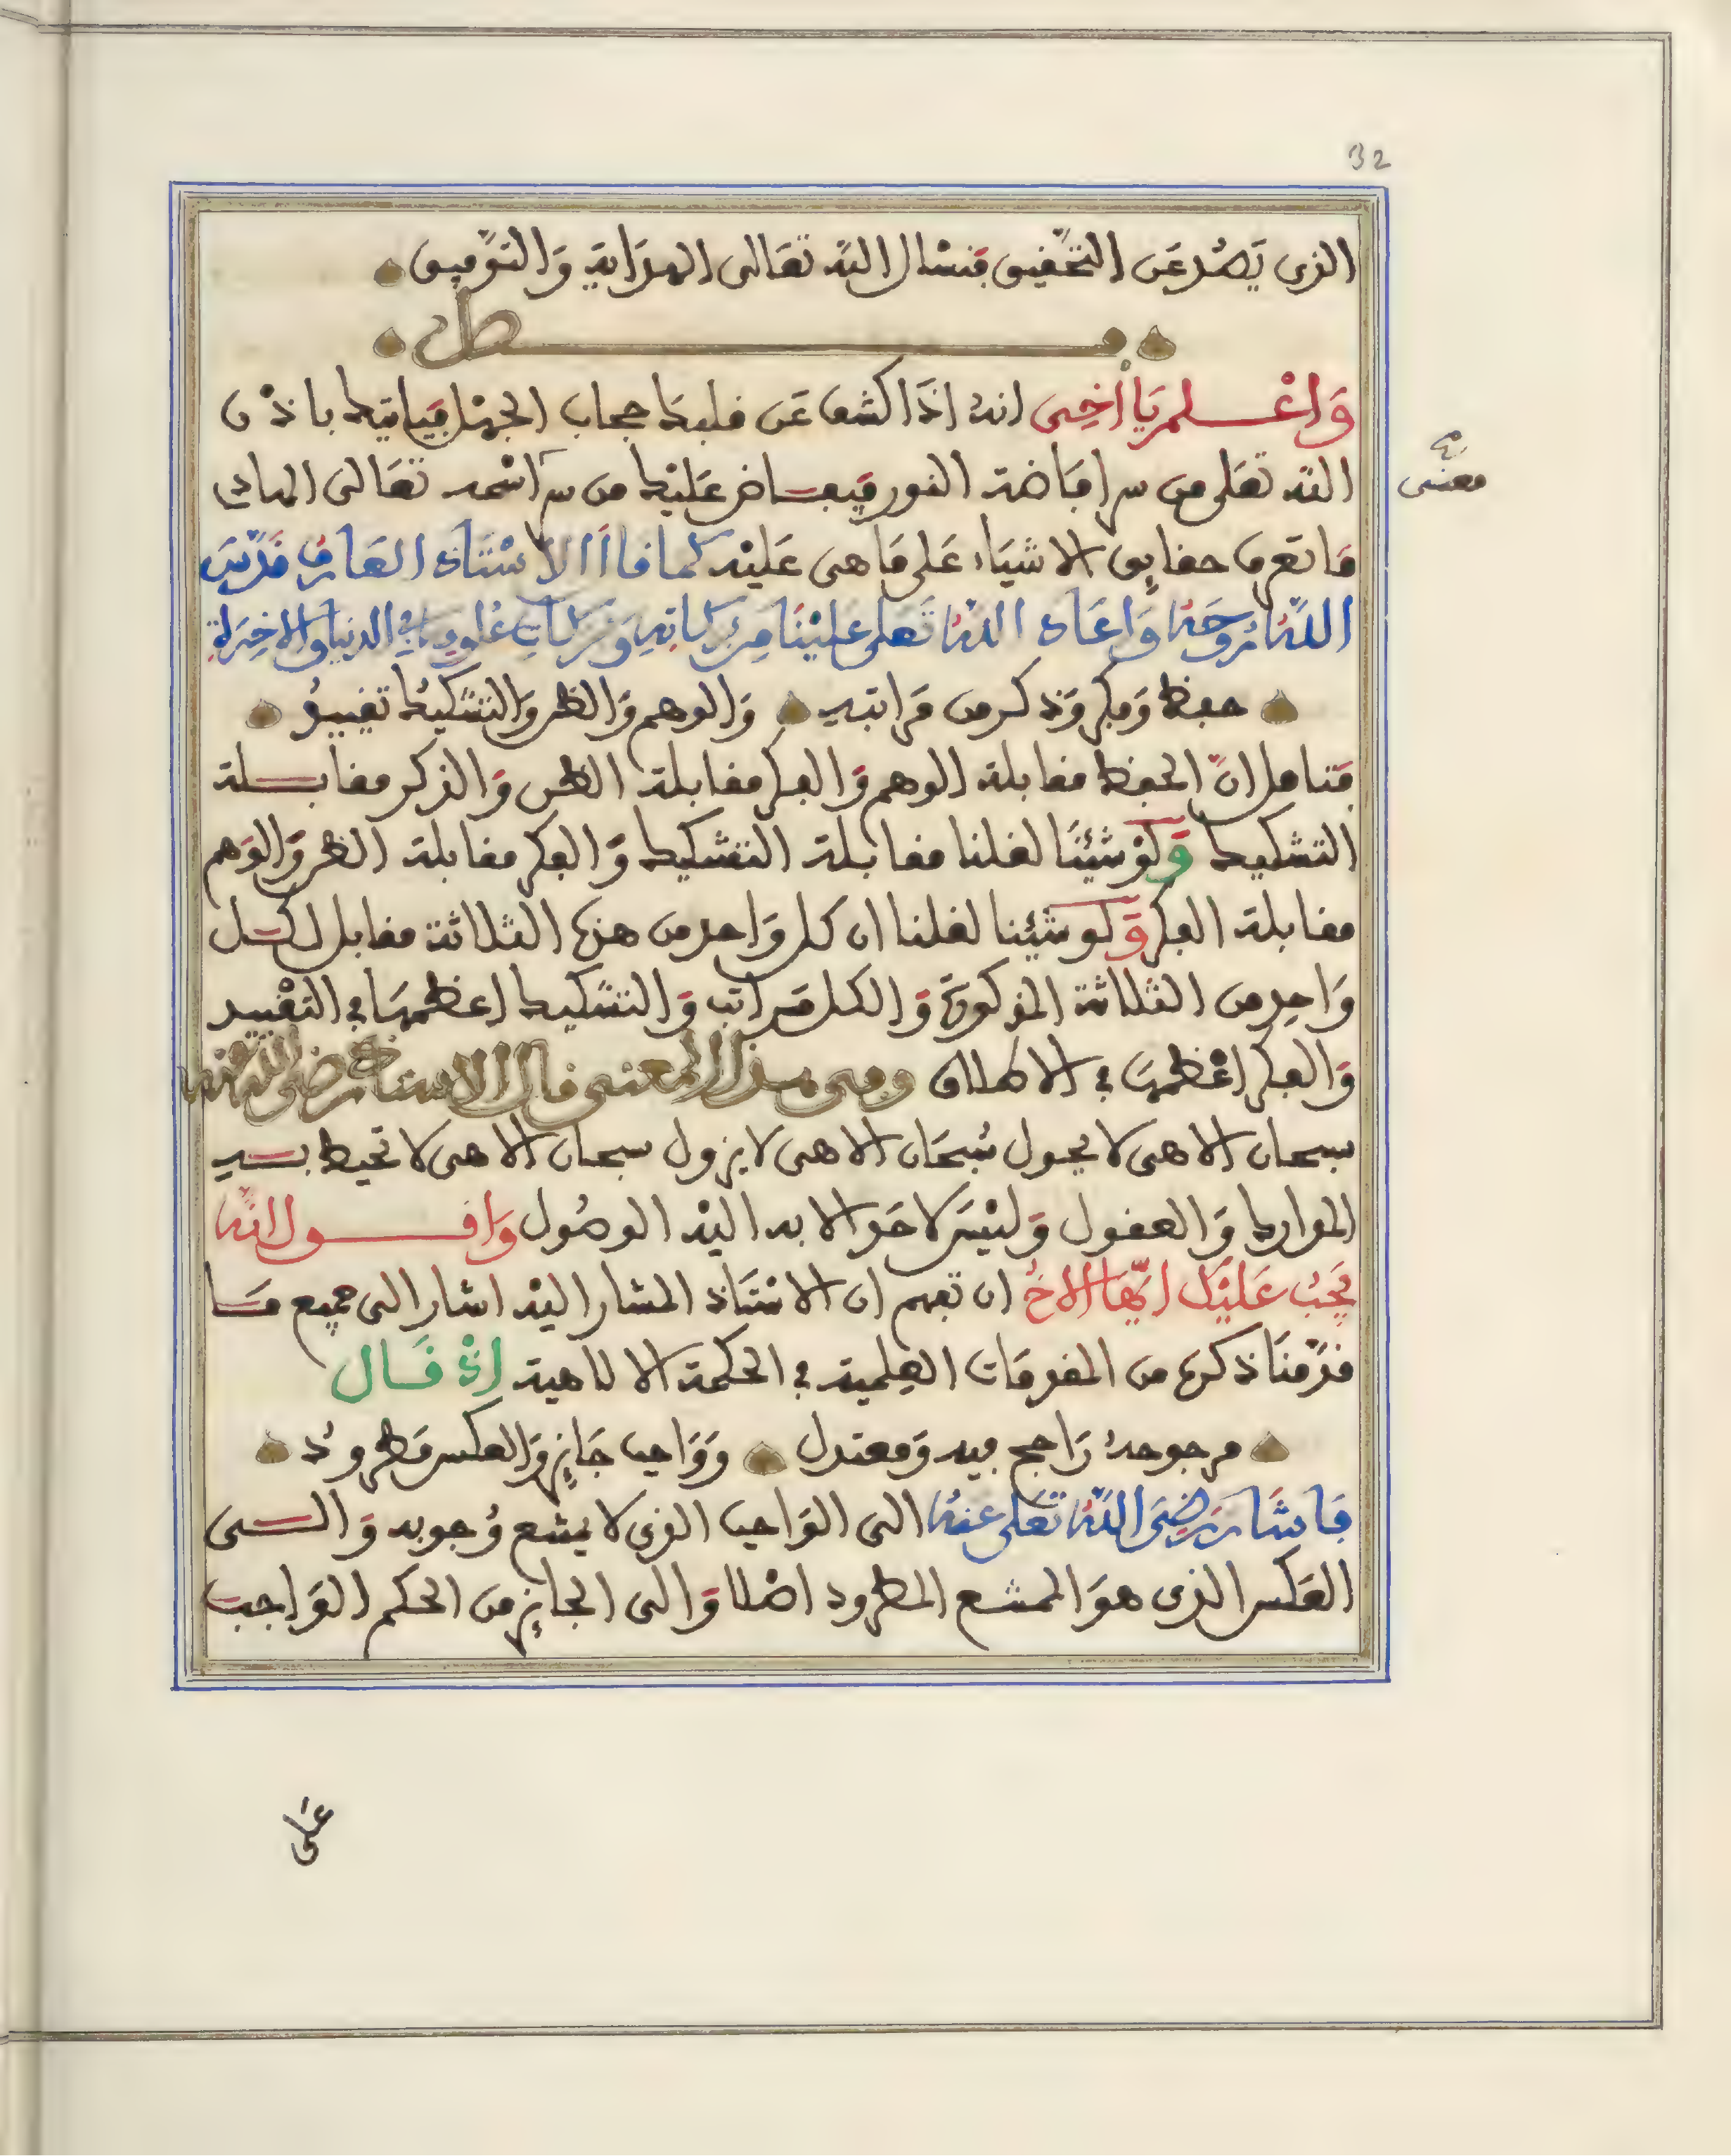 32
الذي يصد عن التحقيق فنسال الله تعالى الهداية والتوفيق
فصل
واعلم يا اخي انه اذا كشف عن قلبك حجاب الجهل فياتيك باذن
الله تعلى من سر افاضة النور فيفاض عليك من سر اسمه تعالى الهادي
ما تعرف حقايق الاشياء على ما هي عليه كما قال الاستاذ العارف قدس
الله روحه واعاد الله تعلى علينا من بركاته وبركات علومه في الدنيا والاخرة
حفظ وفكر وذكر من مراتبه والوهم والظن والتشكيك تقييد
فتامل ان الحفظ مقابلة الوهم والفكر مقابلة الظن والذكر مقابلة
التشكيك ولو شيئنا لقلنا مقابلة التشكيك والفكر مقابلة الظن والوهم
مقابلة الفكر ولو شيئنا لقلنا ان كل واحد من هذه الثلاثة مقابل لكل
واحد من الثلاثة المذكورة والكل مراتب والتشكيك اعظمها في التقييد
والفكر اعظمها في الاطلاق وفي هذا المعنى قال الاستاذ رضي الله عنه
سبحان الاهي لا يحول سبحان الاهي لا يزول سبحان الاهي لا تحيط به
المدارك والعقول وليس لاحد الا به اليه الوصول واقول انه
يجب عليك ايها الاخ ان تفهم ان الاستاذ المشار اليه اشار الى جميع ما
قدمنا ذكره من المقدمات العلمية في الحكمة الالاهية اذ قال
مرجوحه راجح فيه ومعتدل وواجب جايز والعكس مطرود
فاشار رضي الله تعلى عنه الى الواجب الذي لا يمتنع وجوبه والى
العكس الذي هو الممتنع المطرود اصلا والى الجايز من الحكم الواجب
معنى
على